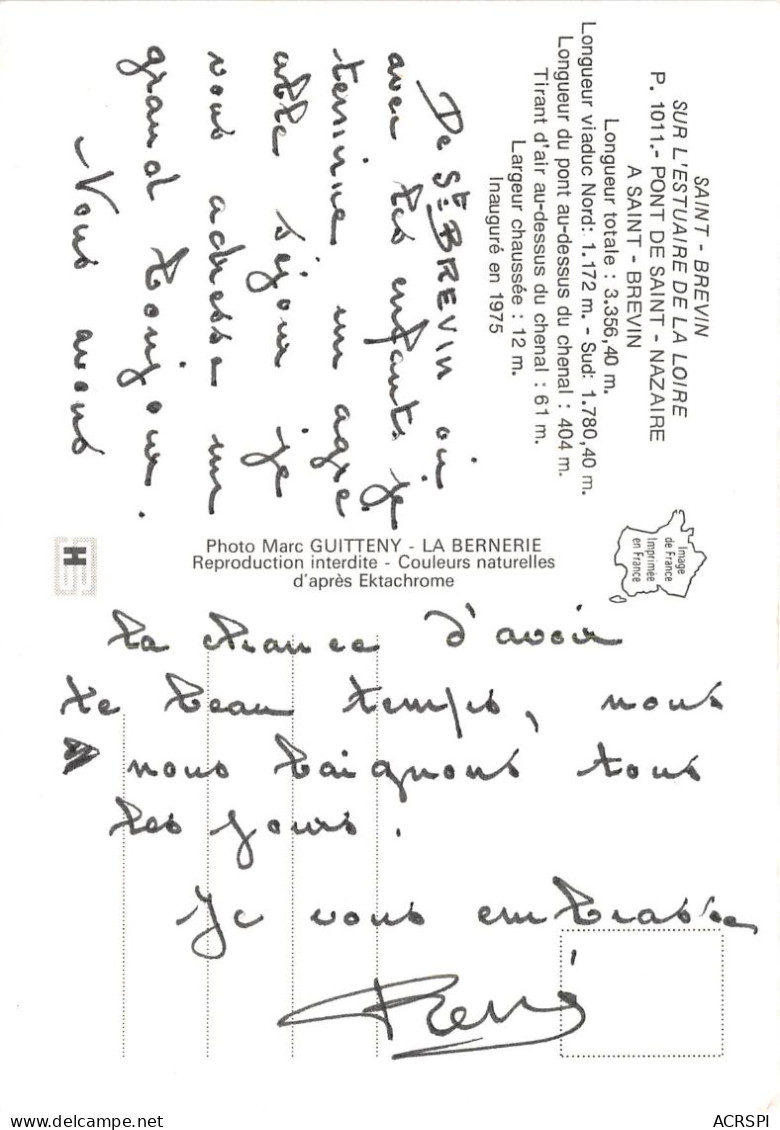 SAINT - BREVIN
SUR L'ESTUAIRE DE LA LOIRE
P. 1011.- PONT DE SAINT - NAZAIRE
A SAINT - BREVIN
Longueur totale : 3.356,40 m.
Longueur viaduc Nord: 1.172 m. - Sud: 1.780,40 m.
Longueur du pont au-dessus du chenal : 404 m.
Tirant d'air au-dessus du chenal : 61 m.
Largeur chaussée : 12 m.
Inauguré en 1975
De St BREVIN où
avec les enfants je
termine un agré
able séjour je
vous adresse un
grand bonjour.
Nous avons
Image
de France
Imprimée
en France
Photo Marc GUITTENY - LA BERNERIE
Reproduction interdite - Couleurs naturelles
d'après Ektachrome
H
la chance d'avoir
le beau temps, nous
nous baignons tous
les jours.
Je vous embrasse
René
delcampe.net
ACRSPI